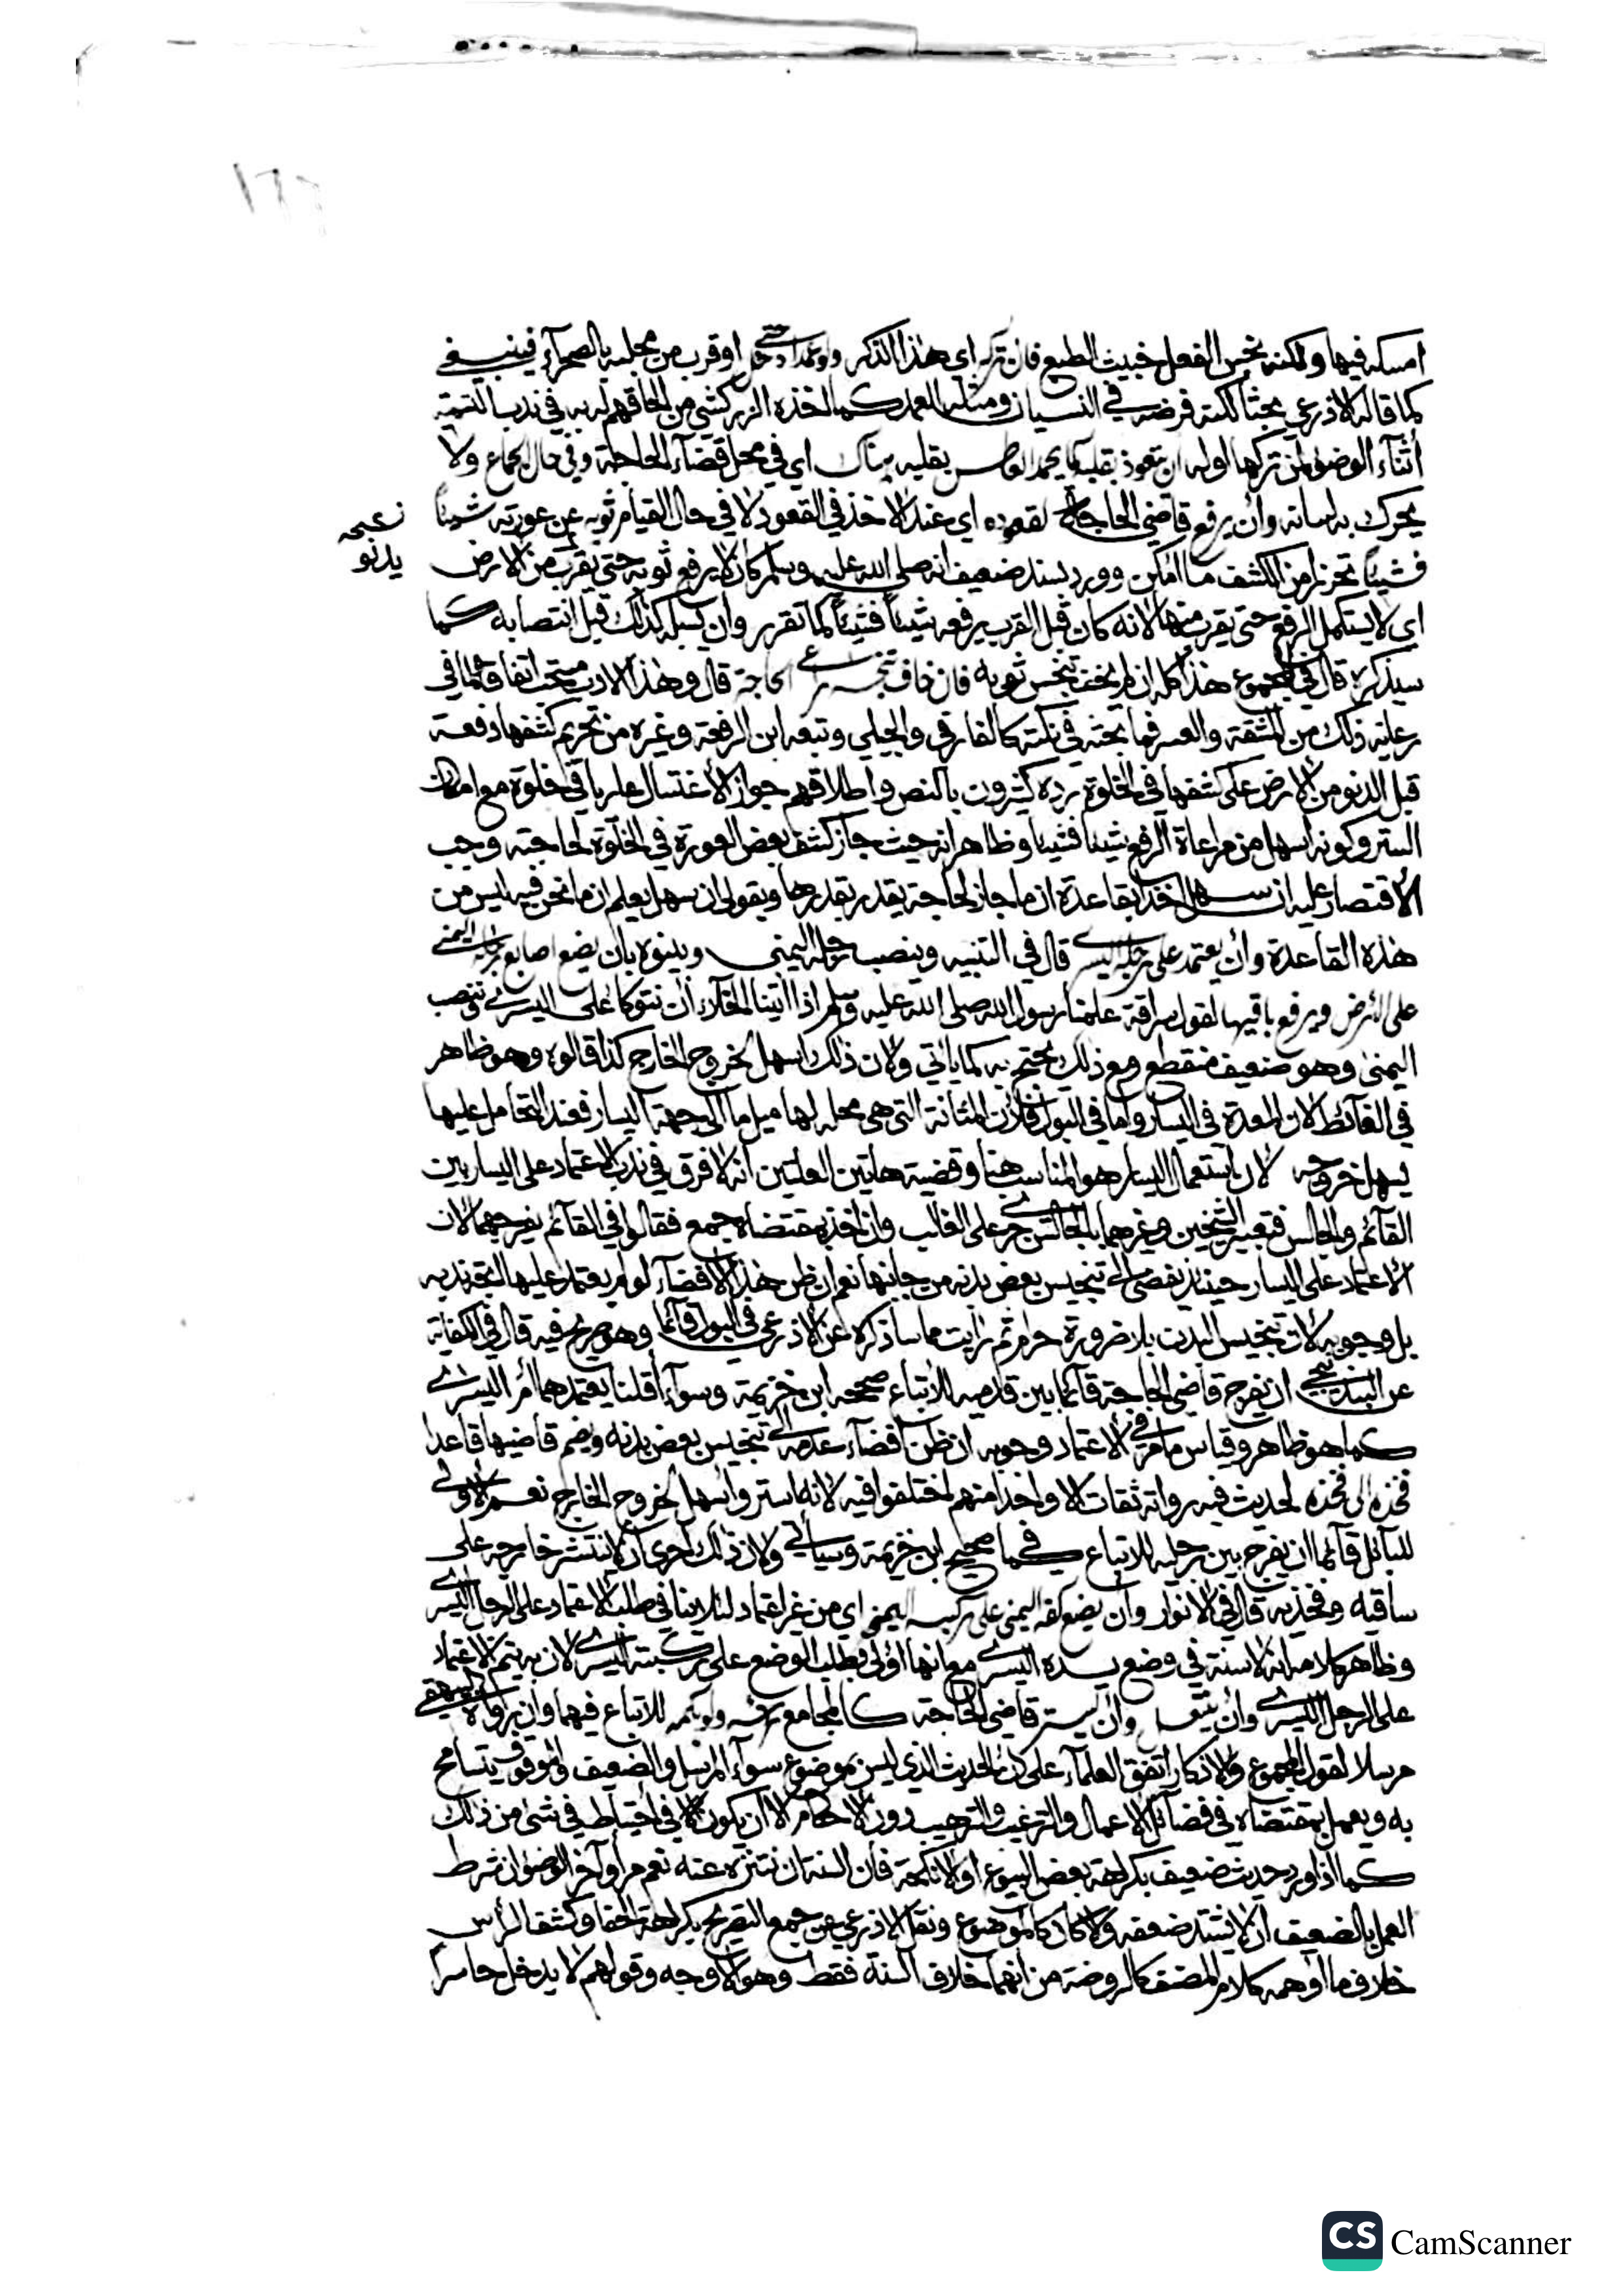 ١٦٦
امسكه فيها ولكنه نجس الفعل خبيث الطبع فان تركه اي هذا الذكر ولو عمدا حتى دخل او قرب من محله بالصحرآء فينبغي
كما قاله الاذرعي بحثا لكنه فرضه في النسيان ومثله العمد كما اخذه الزركشي من الحاقهم له به في ندب التسمية
أثنآء الوضوء لمن تركها اوله ان يتعوذ بقلبه كما يحمد العاطس بقلبه هناك اي في محل قضآء الحاجة وفي حال الجماع ولا
يحرك به لسانه وأن يرفع قاضي الحاجة لقعوده اي عند الاخذ في القعود لا في حال القيام ثوبه عن عورته شيئاً
فشيئاً تحرزا من الكشف ما امكن وورد بسند ضعيف انه صلى الله عليه وسلم كان لا يرفع ثوبه حتى يقرب من الارض
يدنو
اي لا يستكمل الرفع حتى يقرب منها لانه كان قبل القرب يرفعه شيئاً فشيئاً كما تقرر وان يسبله كذلك قبل انتصابه كما
سيذكره قال في المجموع هذا كله ان لم يخف تنجس ثوبه فان خاف تنجسه الحاجة قال وهذا الادب مستحب اتفاقا لما في
رعاية ذلك من المشقة والعسر فما بحثه في نكته كالفارقي والجيلي وتبعه ابن الرفعة وغيره من تحريم كشفها دفعة
قبل الدنو من الارض على كشفها في الخلوة يرده كثيرون بالنص واطلاقهم جواز الاغتسال عاريا في خلوة مع امكان
الستر وكونه اسهل من مراعاة الرفع شيئا فشيئا وظاهر انه حيث جاز كشف بعض العورة في الخلوة لحاجته وجب
الاقتصار عليه ان سهل اخذا بقاعدة ان ما جاز لحاجة يقدر بقدرها وبقولي ان سهل يعلم ان ما نحن فيه ليس من
هذه القاعدة وأن يعتمد على رجله اليسرى قال في التنبيه وينصب رجله اليمنى وبينوه بان يضع اصابع رجله اليمنى
على الارض ويرفع باقيها لقول سراقة علمنا رسول الله صلى الله عليه وسلم اذا اتينا الخلآء ان نتوكأ على اليسرى وننصب
اليمنى وهو ضعيف منقطع ومع ذلك يحتج به كما ياتي ولان ذلك اسهل لخروج الخارج كذا قالوه وهو ظاهر
في الغآئط لان المعدة في اليسار واما في البول فلأن المثانة التي هي محله لها ميل ما الى جهة اليسار فعند التحامل عليها
يسهل خروجه لان استعمال اليسار هو المناسب هنا وقضية هاتين العلتين انه لا فرق في ندب الاعتماد على اليسار بين
القآئم والجالس فتعبير الشيخين وغيرهما بالجالس جرى على الغالب وان اخذ بمقتضاه جمع فقالوا في القآئم يفرجهما لان
الاعتماد على اليسار حينئذ يفضي الى تنجيس بعض بدنه من جانبها نعم ان ظن هذا الافضآء لو لم يعتمد عليها اتجه ندبه
بل وجوبه لان تنجيس البدن بلا ضرورة حرام ثم رايت ما ساذكره عن الاذرعي في البول قآئما وهو صريح فيه قال في الكفاية
عن البندنيجي ان يفرج قاضي الحاجة قآئما بين قدميه للاتباع صححه ابن خزيمة وسوآء اقلنا يعتمدهما أم اليسرى
كما هو ظاهر وقياس ما مر في الاعتماد وجوبه ان ظن افضآء عدمه الى تنجيس بعض بدنه ويضم قاضيها قاعدا
فخذه الى فخذه لحديث فيه رواته ثقات الا واحدا منهم اختلفوا فيه لانه استر واسهل لخروج الخارج نعم الاولى
للبآئل قآئما ان يفرج بين رجليه للاتباع كما في صحيح ابن خزيمة وسياتي ولان ذلك احرى ان لا ينتشر خارجه على
ساقيه وفخذيه قال في الانوار وأن يضع كفه اليمنى على ركبته اليمنى اي من غير اعتماد لئلا ينافي طلب الاعتماد على الرجل اليسرى
وظاهر كلامه انه لا سنة في وضع يده اليسرى مع انها اولى بطلب الوضع على ركبته اليسرى لان به يتم الاعتماد
على الرجل اليسرى وأن ينتعل وأن يستر قاضي الحاجة كالمجامع رأسه ولو بكمه للاتباع فيهما وان رواه البيهقي
مرسلا لقول المجموع والاذكار اتفق العلمآء على ان الحديث الذي ليس بموضوع سوآء المرسل والضعيف والموقوف يتسامح
به ويعمل بمقتضاه في فضآئل الاعمال والترغيب والترهيب دون الاحكام الا ان يكون في احتياط في شئ من ذلك
كما اذا ورد حديث ضعيف بكراهة بعض البيوع او الانكحة فان السنة ان يتنزه عنه نعم مر أوآخر الوضوء ان شرط
العمل بالضعيف ان لا يشتد ضعفه والا كان كالموضوع ونقل الاذرعي عن جمع التصريح بكراهة الحفا وكشف الرأس
خلاف ما اوهمه كلام المصنف كالروضة من انهما خلاف السنة فقط وهو الاوجه وقولهم لا يدخل حاسراً
CS CamScanner